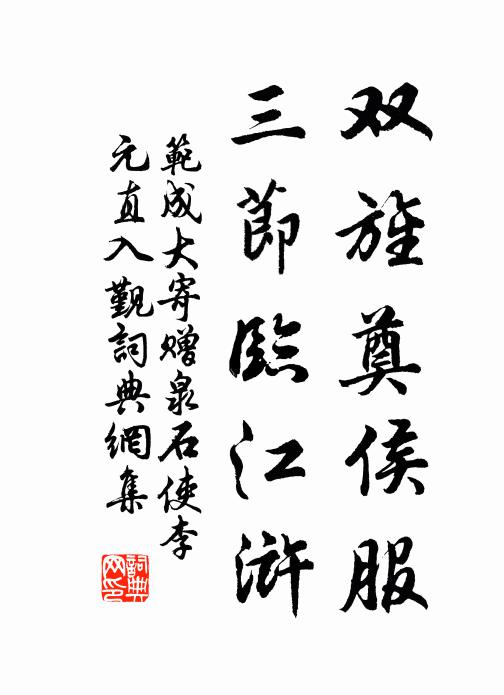 双旌奠侯服
三節臨江滸
範成大寄贈泉石使李
元直入覲詞典網集
詞典网印